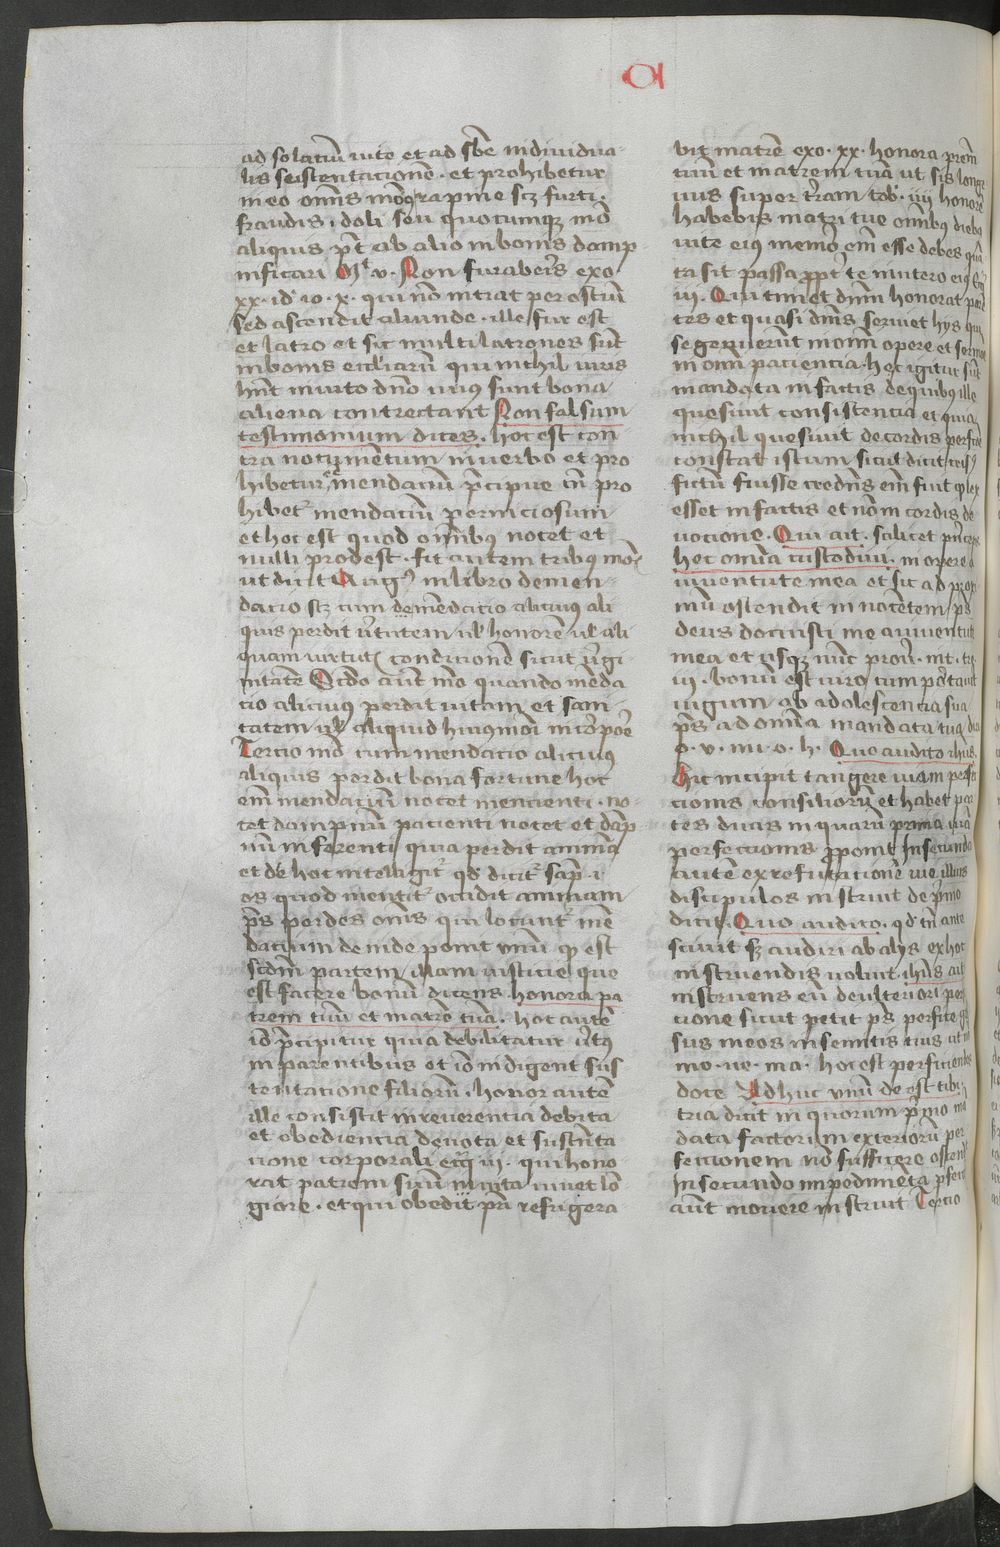 ad solatiū vite et ad sbē individua-
lis seistentacionē · et prohibetur
in eo omīs modꝰ rapine scz furti ·
fraudis · doli seu quocumqꝫ mō
aliquis pt̄ ab alio in bonis damp-
nificari Mt v · Non furaberis exo
xx · id io · x · qui nō intrat per ostiū
sed ascendit aliunde · ille fur est
et latro et sic multi latrones sūt
in bonis eccliarū qui nichil iuris
hn̄t invito dn̄o cuiꝰ sunt bona
aliena contrectant Non falsum
testimonium dices · hoc est con-
tra nocumentum in verbo et pro
hibetur mendaciū p̄cipue tn̄ pro
hibetͬ mendaciū perniciosum
et hoc est quod om̄ibus nocet et
nulli prodest · fit autem tribꝰ mōis
ut dicit Augꝰ in libro de men-
dacio scz cum de mēdacio alicuiꝰ ali
quis perdit v̄tutem ul' honorē ul' ali
quam virtutis condicionē sicut v̄gi
nitatē Scd̄o aut mō quando mēda
cio alicuius perdit vitam et sani
tatem ul' aliquid huiꝰmodi in corpoē
Tercio mō cum mendacio alicuius
aliquis perdit bona fortune hoc
em̄ mendaciū nocet mencienti · no-
cet dampnū pacienti nocet et dāp
nū inferenti quia perdit animā
et de hoc intelligitͬ qd̄ dicitͬ sap̄ · i
os quod mentitͬ occidit animam
p̄s perdes om̄s qui locuntͬ mē
dacium deinde ponit vnū qd est
scd̄m partem illam iusticie que
est facere bonū dicens honora pa
trem tuū et matrē tuā · hoc autē
id p̄cipitur quia debilitatur v̄tꝰ
in parentibus et iō indigent sus
tentacione filiorū · honor autē
ille consistit in reverencia debita
et obediencia devota et sustenta
cione corporali eccͥ iii · qui hono
rat patrem suū in vita vivet lō
giore · et qui obedit pr̄i refrigera
bit matrē exo · xx · honora prēm
tuū et matrem tuā ut sis long
vus super tr̄am tob · iiij honorē
habebis matri tue om̄ibus diebꝰ
vite eiꝰ memor em̄ esse debes quā
ta sit passa ꝓpt̄ te in utero eiꝰ Ecc
iii · Qui timet dnm̄ honorat parē
tes et quasi dn̄is serviet hijs qui
se genuerūt in omī opere et sermōe
in omī paciencia · hec igitur sūt
mandata in factis de quibꝰ ille
quesivit consistencia et quia
nichil quesivit de cordis perfcōe
constat istum sicut dicit cris
fictū fuisse credēs em̄ fuit qd lex
esset in factis et nō in cordis de
vocione · Qui ait · scilicet prīceps
hec omīa custodivi · in opere a
iuventute mea et sic ad proxi
mū ostendit innocētem ps
deus docuisti me a iuventute
mea et usqꝫ nūc
iii · bonū est viro cum portavit
iugum ab adolescencia sua
ps ad omīa mandata tua
Quo audito ihus
Hic incipit tangere viam perfec
cionis consiliorū et habet par
tes duas in quarū prima viā
perfeccionis ꝓponit In secunda
autē ex refutacionē vie illius
discipulos instruit de p̄mo
dicit Quo audito · qd tn̄ ante
scivit sz audiri ab alijs ex hoc
instruendis voluit · ihūs ait
instruens eū de ulteriori perfec
cione sicut petit ps perfice gres
sus meos in semitis tuis ut nō
mo · ve · ma · hoc est perficiendos
doce Adhuc vnū de est tibi ·
tria dicit in quorum p̄mo man
data factorum exteriorū per
feccionem nō sufficere ostendit
In secundo impedimēta perfec
aūt movere instruit Tercio